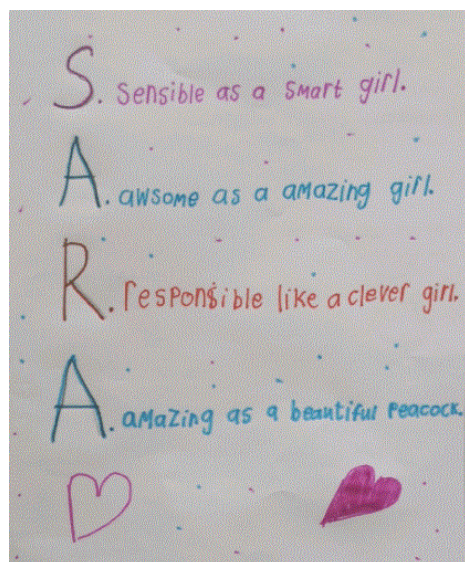 S. Sensible as a smart girl.
A. awsome as a amazing girl.
R. responsible like a clever girl.
A. amazing as a beautiful peacock.